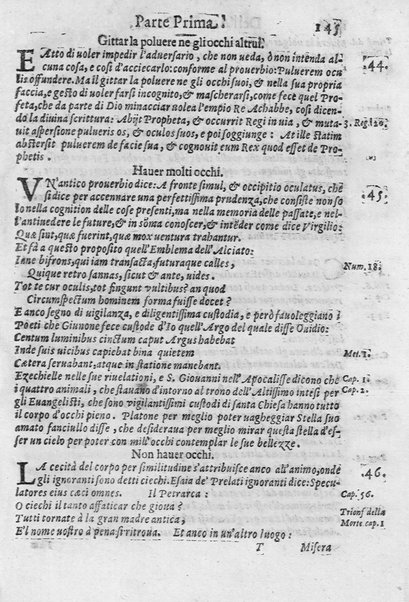 Parte Prima. 145
Gittar la poluere ne gli occhi altrui.
E Atto di uoler impedir l'aduersario, che non ueda, ò non intẽda al-
cuna cosa, e così d'acciecarlo: conforme al prouerbio: Puluerem ocu
lis offundere. Ma il gittar la poluere ne gli occhi suoi, & nella sua propria
faccia, e gesto di uoler farsi incognito, & mascherarsi, come fece quel Pro
feta, che da parte di Dio minacciar uolea l'empio Re Achabbe, così dicen
do la diuina scrittura: Abijt Propheta, & occurrit Regi in uia, & muta-
uit aspersione pulueris os, & oculos suos, e poi soggiunge: At ille statim
abstersit puluerem de facie sua, & cognouit eum Rex quod esset de Pro-
phetis.
44.
3. Reg. 20.
Hauer molti occhi.
VN'antico prouerbio dice: A fronte simul, & occipitio oculatus, chè
si dice per accennare una perfettissima prudenza, che consiste non so
lo nella cognition delle cose presenti, ma nella memoria delle passate, e nel-
l'antiuedere le future, & in sõma conoscer, & intẽder come dice Virgilio:
Quæ sint, quæ fuerint, quæ mox uentura trahantur.
Et fà a questo proposito quell'Emblema dell'Alciato:
Iane bifrons, qui iam transacta, futuraque calles,
Quique retro sannas, sicut & ante, uides.
Tot te cur oculis, tot fingunt vultibus? an quod
Circumspectum hominem forma fuisse docet?
E anco segno di uigilanza, e diligentissima custodia, e però fauoleggiano i
Poeti che Giunone fece custode d'Io quell'Argo del quale disse Ouidio:
Centum luminibus cinctum caput Argus habebat
Inde suis uicibus capiebat bina quietem
Cætera seruabant, atque in statione manebant.
Ezechielle nelle sue riuelationi, e S. Giouanni nell'Apocalisse dicono chè
i quattro animali, che stauano d'intorno al trono dell'Altissimo intesi per
gli Euangelisti, che sono vigilantissimi custodi di santa Chiesa hanno tutto
il corpo d'occhi pieno. Platone per meglio poter uagheggiar Stella suo
amato fanciullo disse, che desideraua per meglio mirar questa stella d'es-
ser un cielo per poter con mill'occhi contemplar le sue bellezze.
45.
Num. 18.
Met. 1.
Cap. 1.
Cap. 2.
Non hauer occhi.
LA cecità del corpo per similitudine s'attribuisce anco all'animo, onde
gli ignoranti sono detti ciechi. Esaia de' Prelati ignoranti dice: Specu-
latores eius cæci omnes. Il Petrarca:
O ciechi il tanto affaticar che gioua?
Tutti tornate à la gran madre antica,
E'l nome uostro à pena si ritroua. Et anco in un'altro luogo:
46.
Cap. 56.
Trionf. della
Morte cap. 1
T Misera